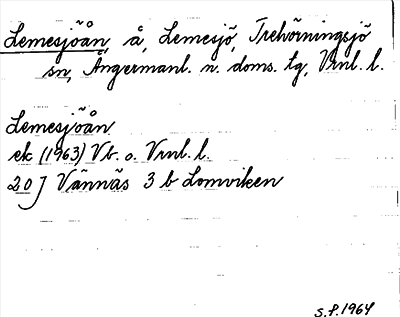 Lemesjöån, å, Lemesjö, Trehörningsjö
sn, Ångermanl. n. doms. tg, Vrnl. l.
Lemesjöån
ek (1963) Vb. o. Vrnl. l.
20 J Vännäs 3 b Lomviken
S.P. 1964